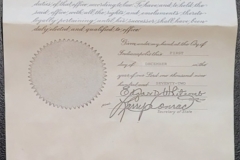 duties of that office according to law and to hold the
said office with all the rights and emoluments thereto
legally pertaining until his successor shall have been
duly elected and qualified to office.
Given under my hand at the City of
Indianapolis this
day of
year of our Lord one thousand nine
hundred and
Edgar D Whitcomb
Larry Conrad
Secretary of State